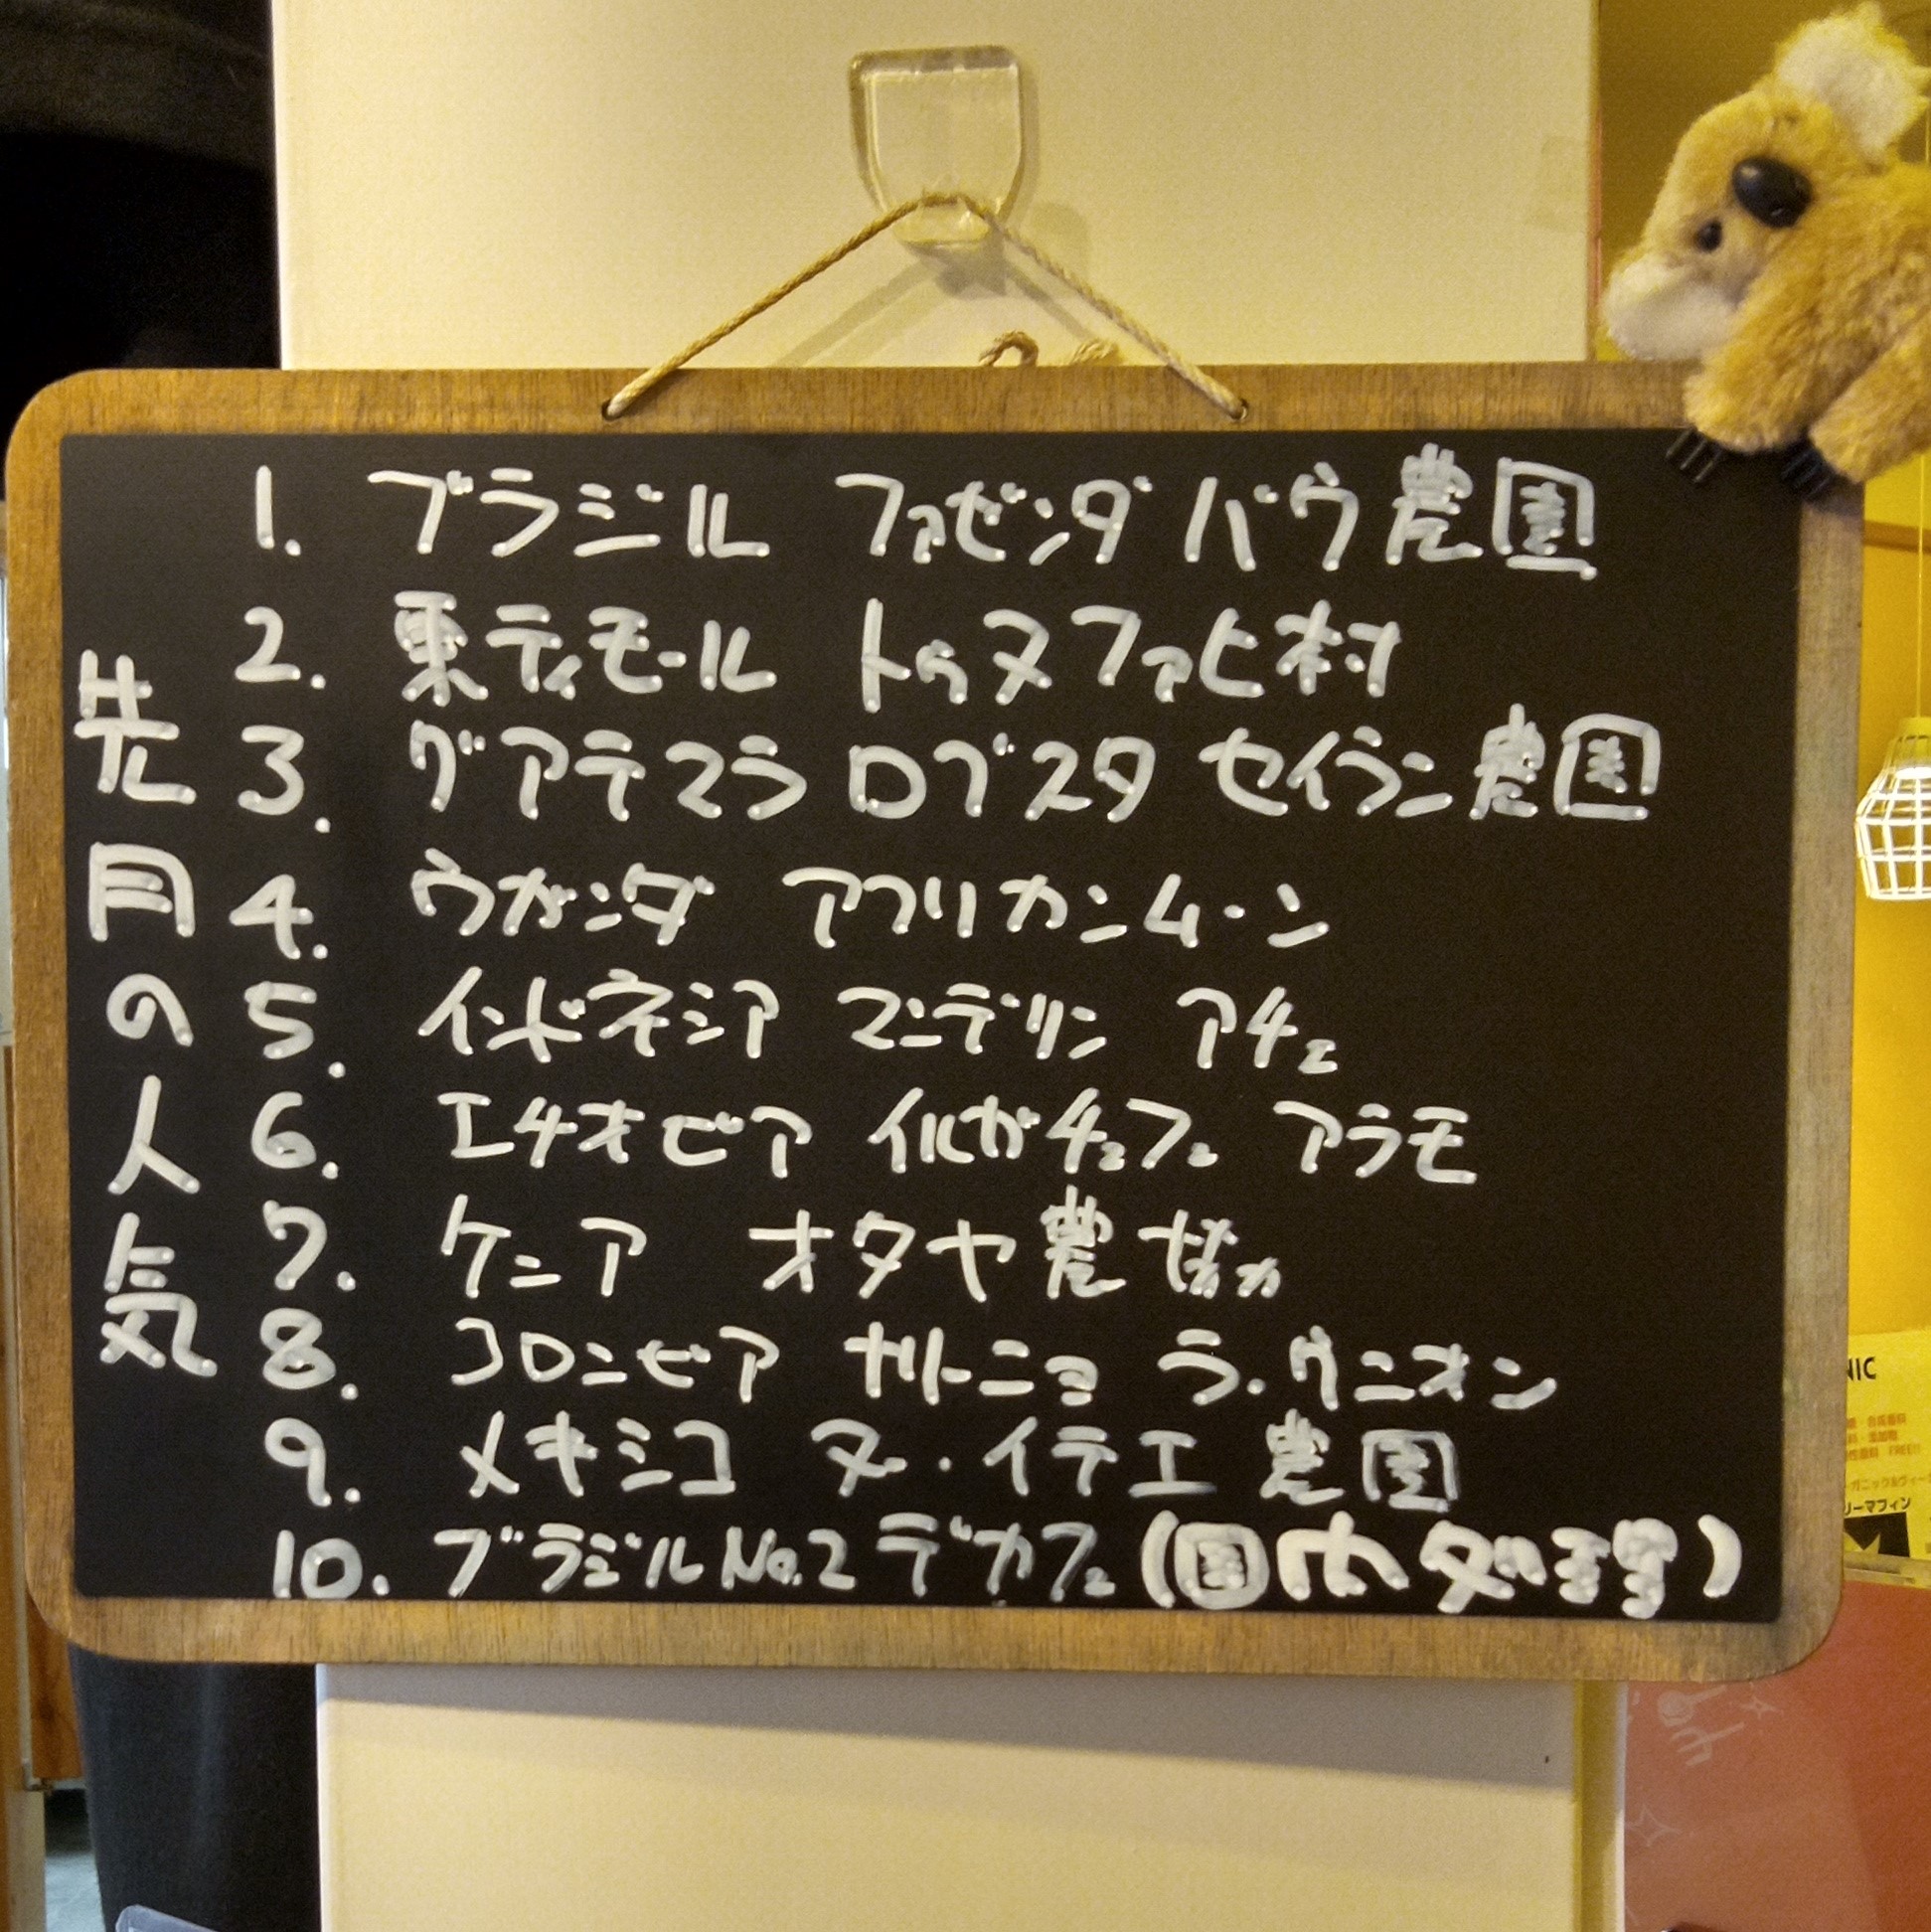 先月の人気
1. ブラジル ファゼンダ バウ農園
2. 東ティモール トゥヌファヒ村
3. グアテマラ ロブスタ セイラン農園
4. ウガンダ アフリカンムーン
5. インドネシア マンデリン アチェ
6. エチオピア イルガチェフェ アラモ
7. ケニア オタヤ農協
8. コロンビア ナリーニョ ラ・ウニオン
9. メキシコ ヌー・イテエ 農園
10. ブラジルNo.2 デカフェ (国内処理)
NIC
FREE!!
リーマフィン